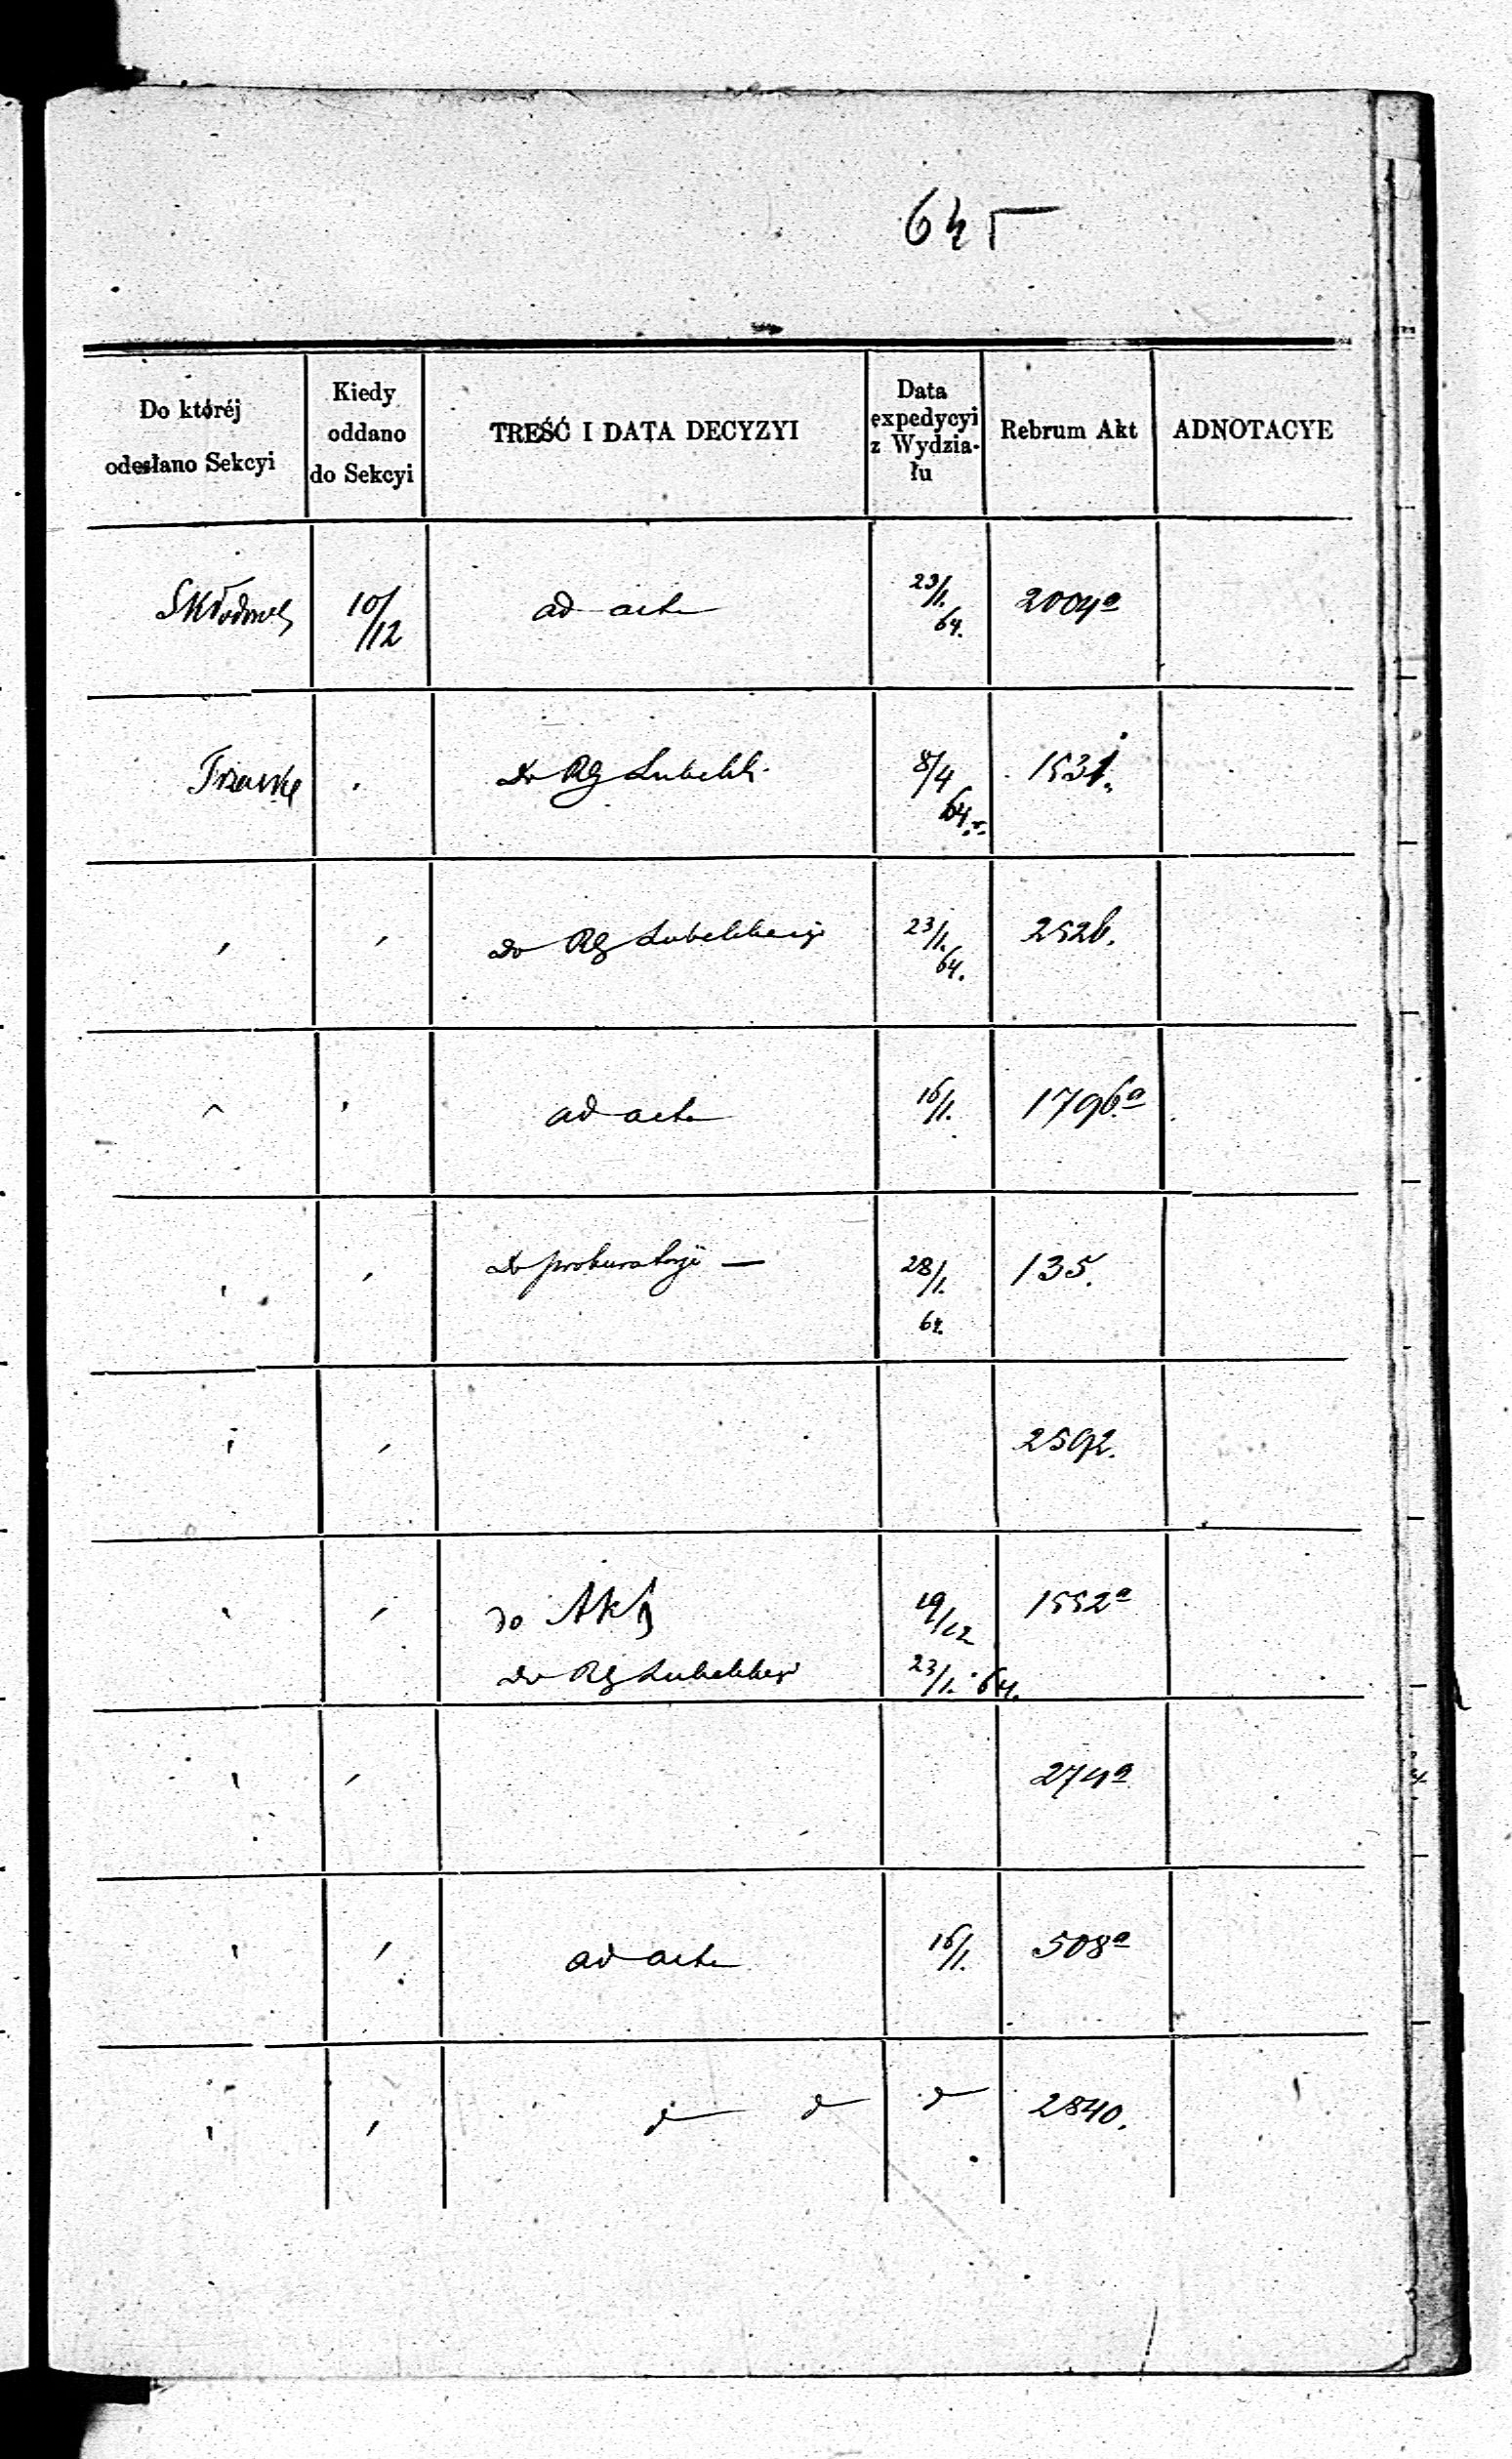 645
Do któréj odesłano Sekcyi | Kiedy oddano do Sekcyi | TREŚĆ I DATA DECYZYI | Data expedycyi z Wydziału | Rebrum Akt | ADNOTACYE
10/12 | ad acta | 23/1. 64. | 2004a
Do RG Lubelsk. | 8/4 64. | 1531.
" | " | Do RG Lubelskiego | 23/1. 64. | 252b.
" | " | ad acta | 16/1. | 1796a
" | " | Do prokuratoryi — | 28/1. 64. | 135.
" | " | 2592.
" | " | do Akt | 19/12 | 1552a
Do RG Lubelskiego | 23/1. 64.
" | " | 274a
" | " | ad acta | 16/1. | 508a
" | " | 2840.